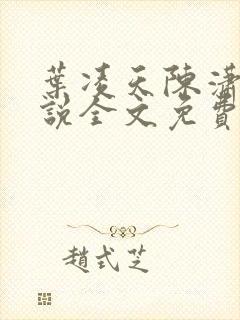 葉凌天陳瀟
說全文免費
趙式芝